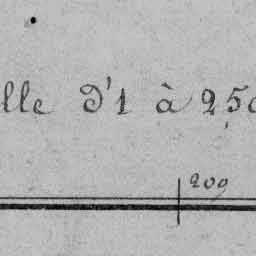 lle d'1 à 250
209